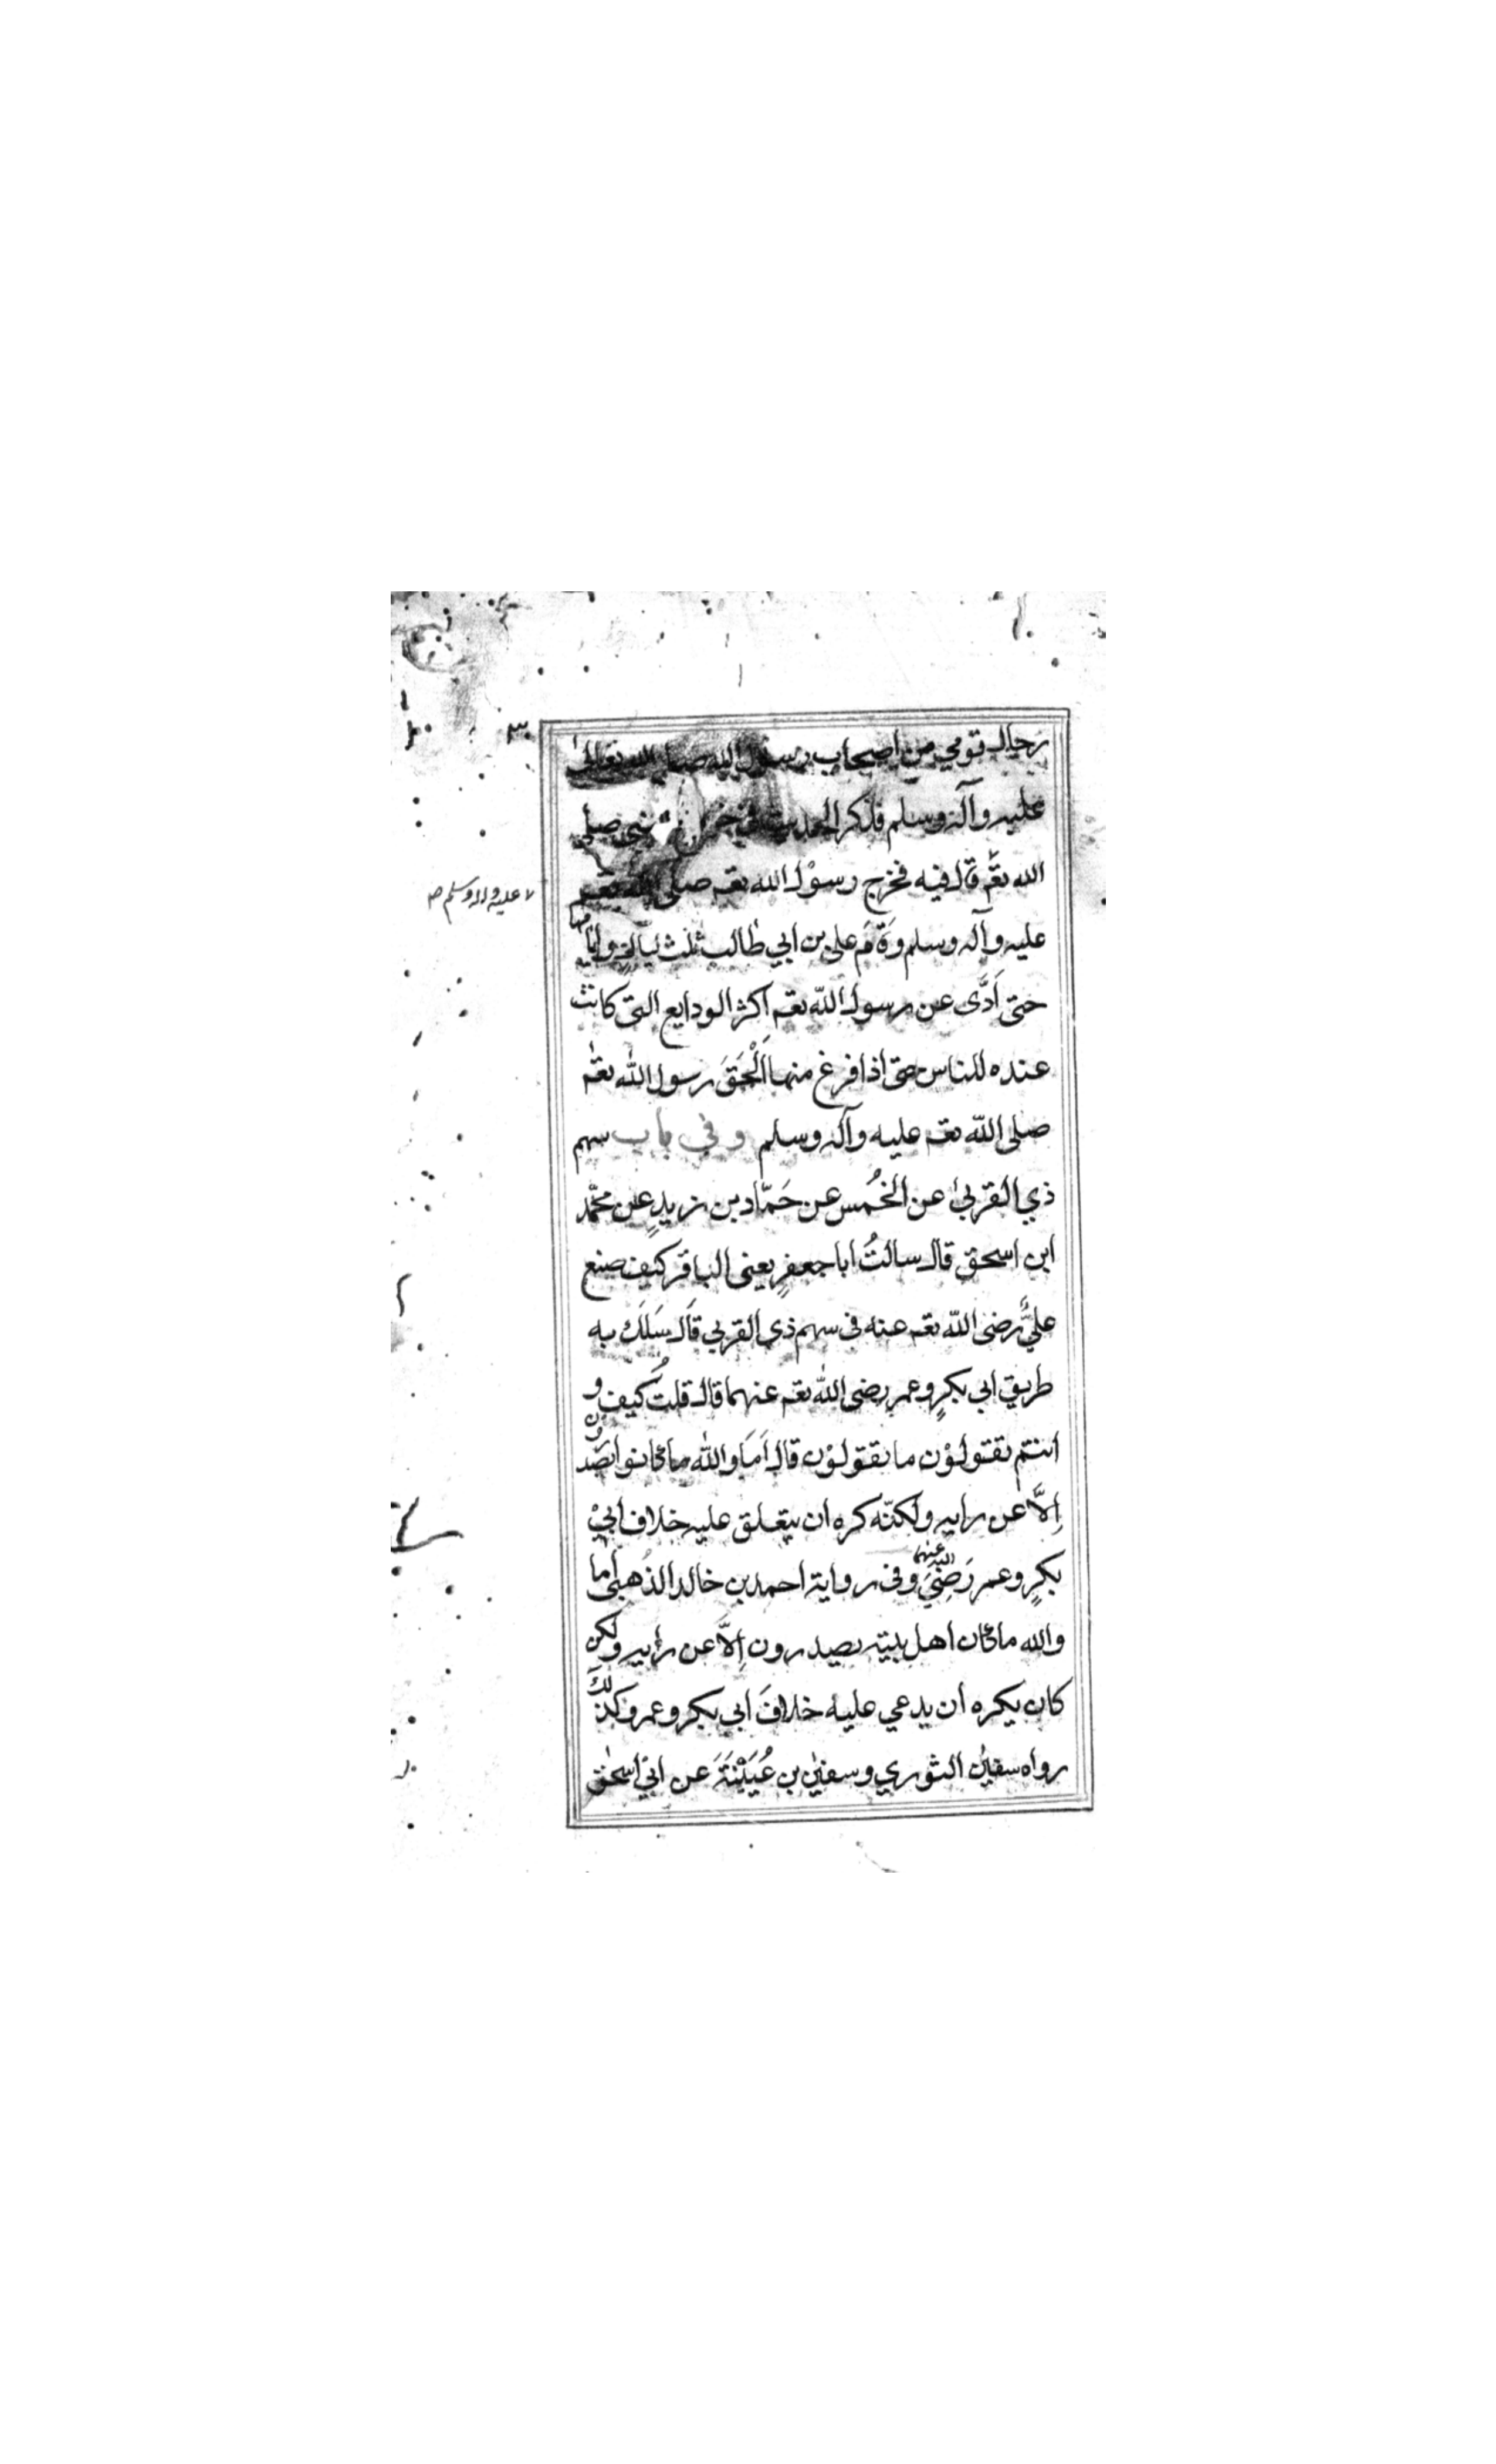 رجال قومي من اصحاب رسول الله صلى الله تعالى
عليه وآله وسلم فذكر الحديث في خر النبي صلى
الله تعه قال فيه فخرج رسوْل الله تعه صلى الله تعه
عليه وآله وسلم
عليه وآله وسلم وقام على بن ابي طالب ثلث ليال وايامها
حتى اَدَّى عن رسول اللّه تعه اكثر الودايع التى كانت
عنده للناس حتى اذا فرغ منها اَلْحَقَ رسول الله تعه
صلى اللّه تعه عليه وآله وسلم وفي باب سهم
ذي القربىٰ عن الخُمس عن حَمّاد بن زيدٍ عن محمّد
ابن اسحق قال سالتُ ابا جعفرٍ يعنى الباقر كيف صنع
عليٌّ رضى اللّه تعه عنه فى سهم ذى القربي قَال سَلَك به
طريق ابى بكرٍ وعمر رضى اللّه تعه عنهما قال قلتُ كيف و
انتم تقولوْن ما تقولوْن قال اَمَا والله ما كانوا يصدرون
اِلّا عن رايه ولكنّه كره ان يتعلق عليه خلاف ابيْ
بكرٍ وعمر رَضِيَ الله عنهما وفى رواية احمد بن خالد الذهبى اما
والله ما كان اهل بيته يصدرون اِلّا عن رأيه ولكن
كان يكره ان يدعي عليه خلافَ ابي بكر وعمر وكذلك
رواه سفيٰن الثوري وسفيٰن بن عُيَيْنَةَ عن ابيْ اسحٰق